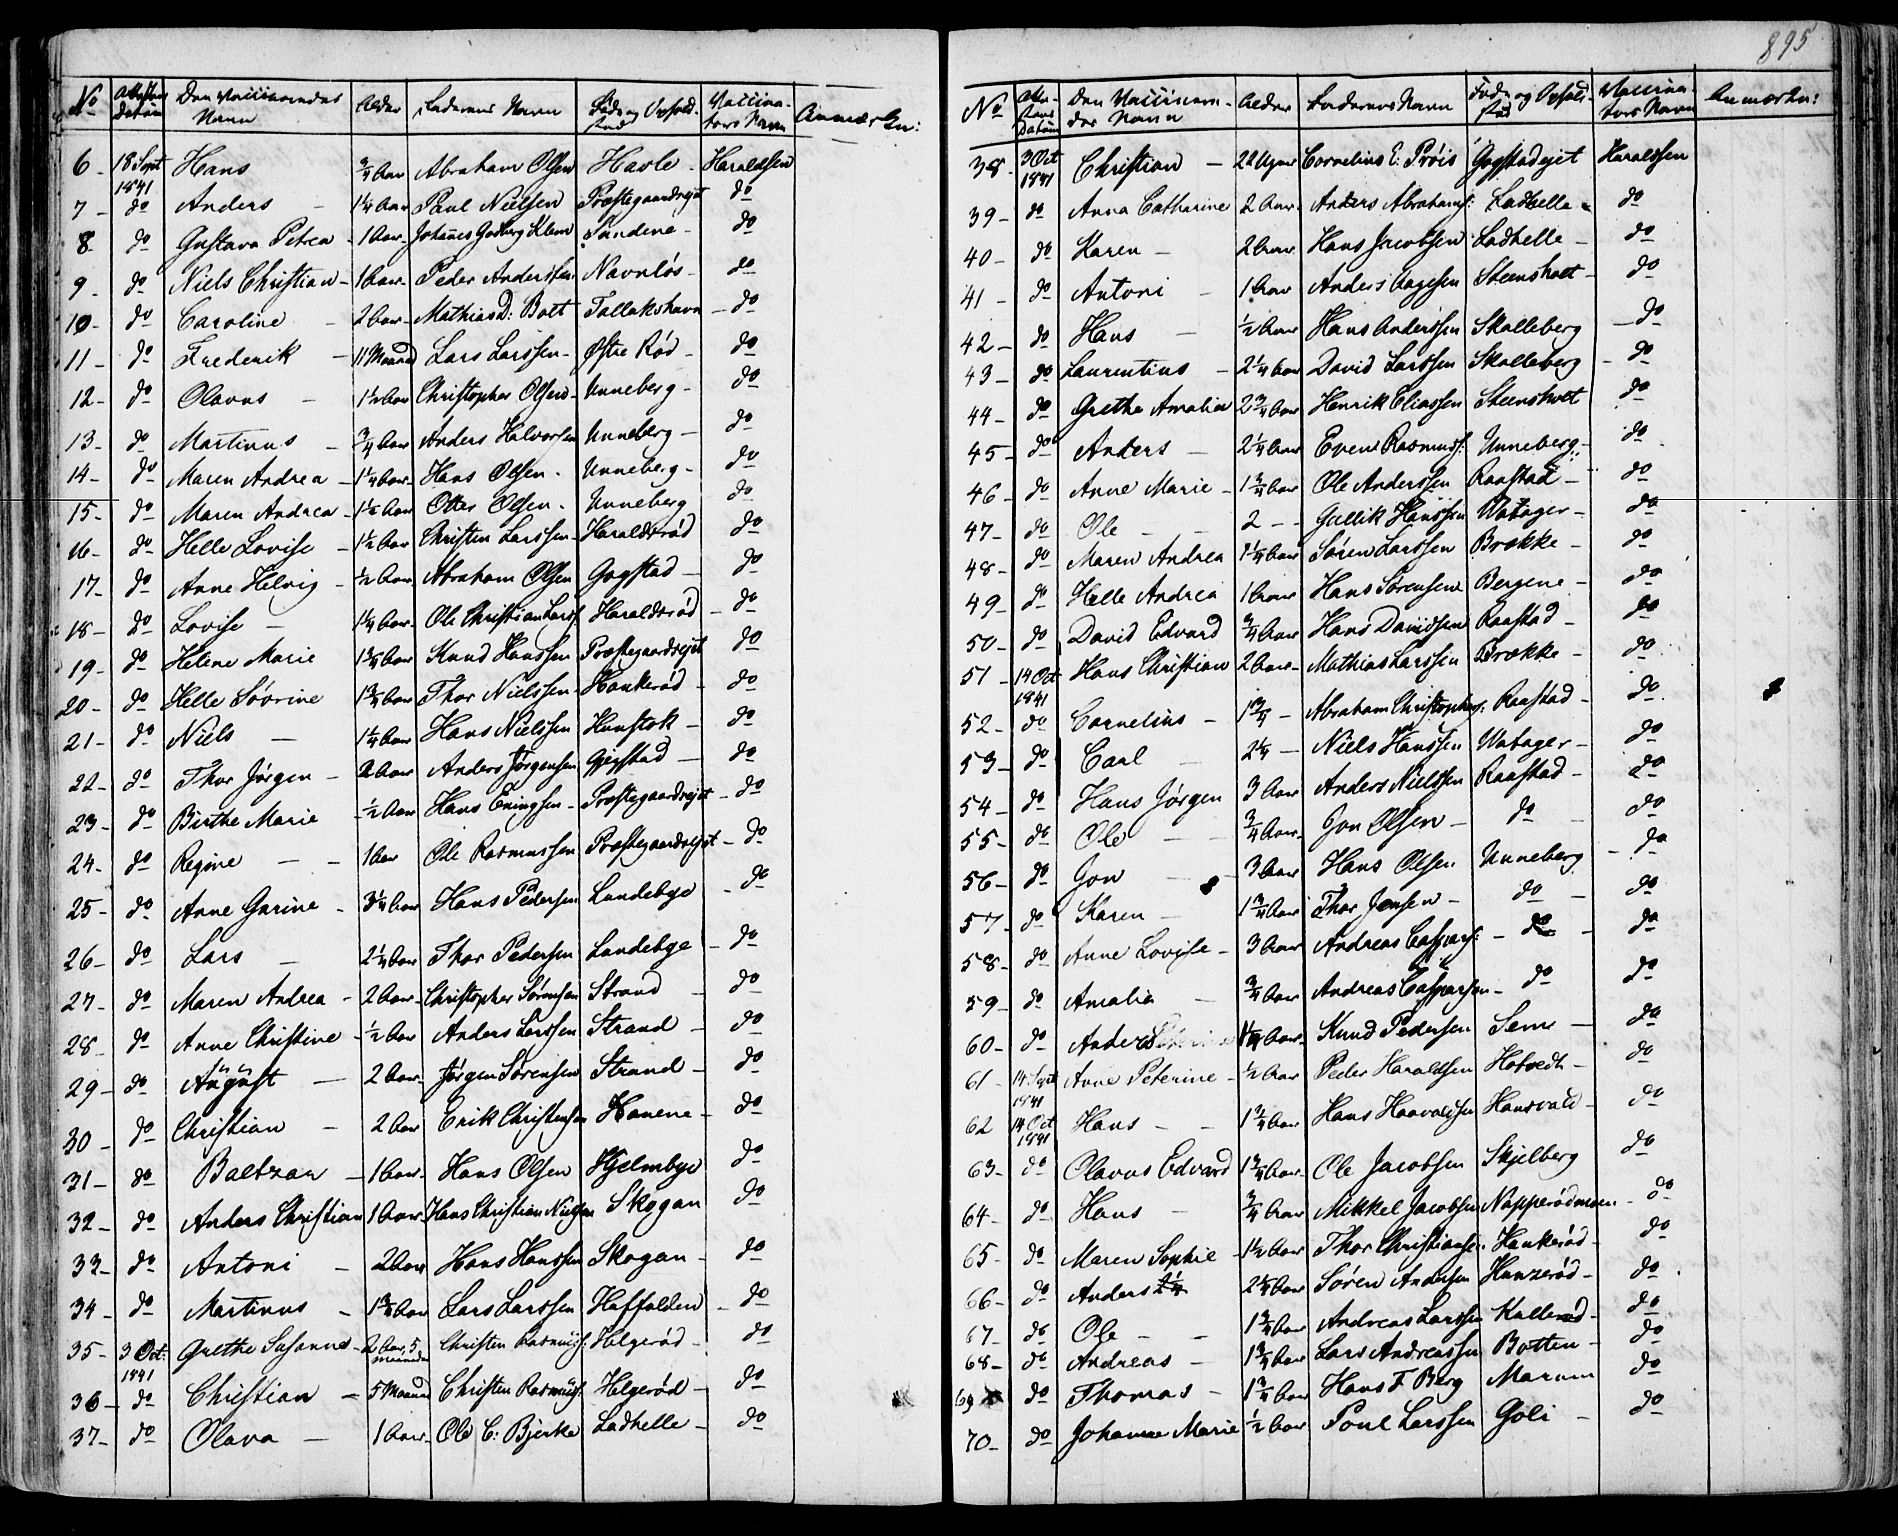 895
No Attestens Datum Den Vaccineredes Navn Alder Faderens Navn Føde og Ophold-sted Vaccina-tørs Navn Anmærkn:
6 - 18 Sept 1841 Hans ¾ Aar Abraham Olsen Hasle - Haraldsen
7 - do Anders - 1¼ Aar Paul Nielsen Præstegaardsejet do
8 - do Gustava Petrea - 1 Aar - Johannes Klem Sundene - do
9 - do Niels Christian - 1 Aar - Peder Anderssen Navnløs - do
10 - do Caroline - 2 Aar - Mathias D: Bolt Tallakshavn - do
11 - do Frederik - 11 Maaned Lars Larssen - Østre Rød - do
12 - do Olavus - 1½ Aar Christopher Olsen - Unneberg - do
13 - do Martinus - ¾ Aar Anders Halvorsen Unneberg - do
14 - do Maren Andrea - 1¼ Aar - Hans Olsen - Unneberg - do
15 - do Maren Andrea - 1½ Aar Otter Olsen - Unneberg do
16 - do Helle Lovise - 1½ Aar Christen Larssen - Haraldsrød do
17 - do Anne Helvig - ½ Aar Abraham Olsen Gogstad - do
18 - do Lovise - 1¼ Aar - Ole Christian Larss. Haraldsrød - do
19 - do Helene Marie 1¾ Aar Knud Hanssen Præstegaardsejet do
20 - do Helle Sovrine 1¾ Aar Thor Nielssen - Haukerød - do
21 - do Niels - 1¼ Aar Hans Nielssen Haustok - do
22 - do Thor Jørgen - 2 Aar Anders Jørgensen Gjegstad - do
23 - do Birthe Marie - ½ Aar Hans Præstegaardsejet - do
24 - do Regine - - 1 Aar Ole Rasmussen Præstegaardsejet - do
25 - do Anne Garine - 3¼ Aar Hans Pedersen Lundebye - do
26 - do Lars - 2¼ Aar Thor Pedersen Lundebye - do
27 - do Maren Andrea - 2 Aar - Christopher Sørensen Strand - do
28 - do Anne Christine - ½ Aar Anders Larssen Strand - do
29 - do August - 2 Aar - Jørgen Sørensen Strand - do
30 - do Christian - 2 Aar Erik Christensen Hanene - do
31 - do Baltzar - 1 Aar - Hans Olsen Hjelmbye do
32 - do Anders Christian 1 Aar - Hans Christian Nielsen Skogan do
33 - do Antoni - 2 Aar Hans Hanssen Skogan - do
34 - do Martinus - 1¾ Aar Lars Larssen Haffalden - do
35 - 3 Oct: 1841 Grethe Susanne - 2 Aar, 5 maaneder Christen Rasmuss: Helgerød - do
36 - do Christian - 5 Maaned Christen Rasmuss: Helgerød - do
37 - do Olava - 1 Aar - Ole C: Bjerke Ladhelle - do
No Atte-stens Datum Den Vaccinere-des Navn Alder Faderens Navn Føde og Ophold-sted Vaccina-tørs Navn Anmærkn:
38 - 3 Oct 1841 Christian - 22 Uger Cornelius E: Prøis Gogstadejet Haraldssen
39 - do Anna Catharine 2 Aar - Anders Abrahams: Ladhelle - do
40 - do Karen - 2 Aar Hans Jacobsen Ladhelle - do
41 - do Antoni - 1 Aar Anders Aagesen Steensholt - do
42 - do Hans - ½ Aar Hans Anderssen Skalleberg - do
43 - do Laurentius - 2¼ Aar David Larssen Skalleberg - do
44 - do Grethe Amalia 2¾ Aar Henrik Eliassen Steensholt do
45 - do Anders - 2¼ Aar Even Rasmuss: Unneberg - do
46 - do Anne Marie - 1¾ Aar Ole Anderssen Raastad - do
47 - do Ole - - 2 - - Gullik Hanssen Vatager - do
48 - do Maren Andrea 1¼ Aar Søren Larssen Brække - do
49 - do Helle Andrea 1 Aar Hans Sørensen Bergene - do
50 - do David Edvard ¾ Aar Hans Davidsen Raastad - do
51 - 14 Oct 1841 Hans Christian 2 Aar - Mathias Larssen Brække - do
52 - do Cornelius - 1¾ - Abraham Christophers: Raastad - do
53 - do Carl - 2¼ - Niels Hanssen Vatager - do
54 - do Hans Jørgen 3 Aar Anders Nielssen Raastad - do
55 - do Ole - - ¾ Aar - Jon Olsen - do - do
56 - do Jon - 3 Aar Hans Olsen Unneberg - do
57 - do Karen - 1¾ Aar Thor Jensen - do - do
58 - do Anne Lovise - 3 Aar Andreas Caspars: - do - do
59 - do Amalia - ¾ Aar Andreas Casparsen - do do
60 - do Anders 1¼ Aar - Knud Pedersen Seme - do
61 - 14 Sept 1841 Anne Peterine - ½ Aar Peder Haraldsen Hotvedt - do
62 14 Oct 1841 Hans - - 1¾ Aar Hans Haavaldsen Hansvald - do
63 - do Olavus Edvard 1¾ Aar - Ole Jacobsen Skjelberg do
64 - do Hans - ¾ Aar Mikkel Jacobsen Napperødmoen - do
65 - do Maren Sophie - 1½ Aar Thor Christianse: Haukerød - do
66 - do Anders 2¼ 2¼ Aar Søren Andersen Hunzerød - do
67 - do Ole - - 1¾ Aar Andreas Larssen Kullerød - do
68 - do Andreas - 1¾ Aar Lars Andreassen Botten - do
69 do Thomas - 1¾ Aar Hans F Berg Marum do
70 - do Johanne Marie ½ Aar Poul Larssen Goli - do